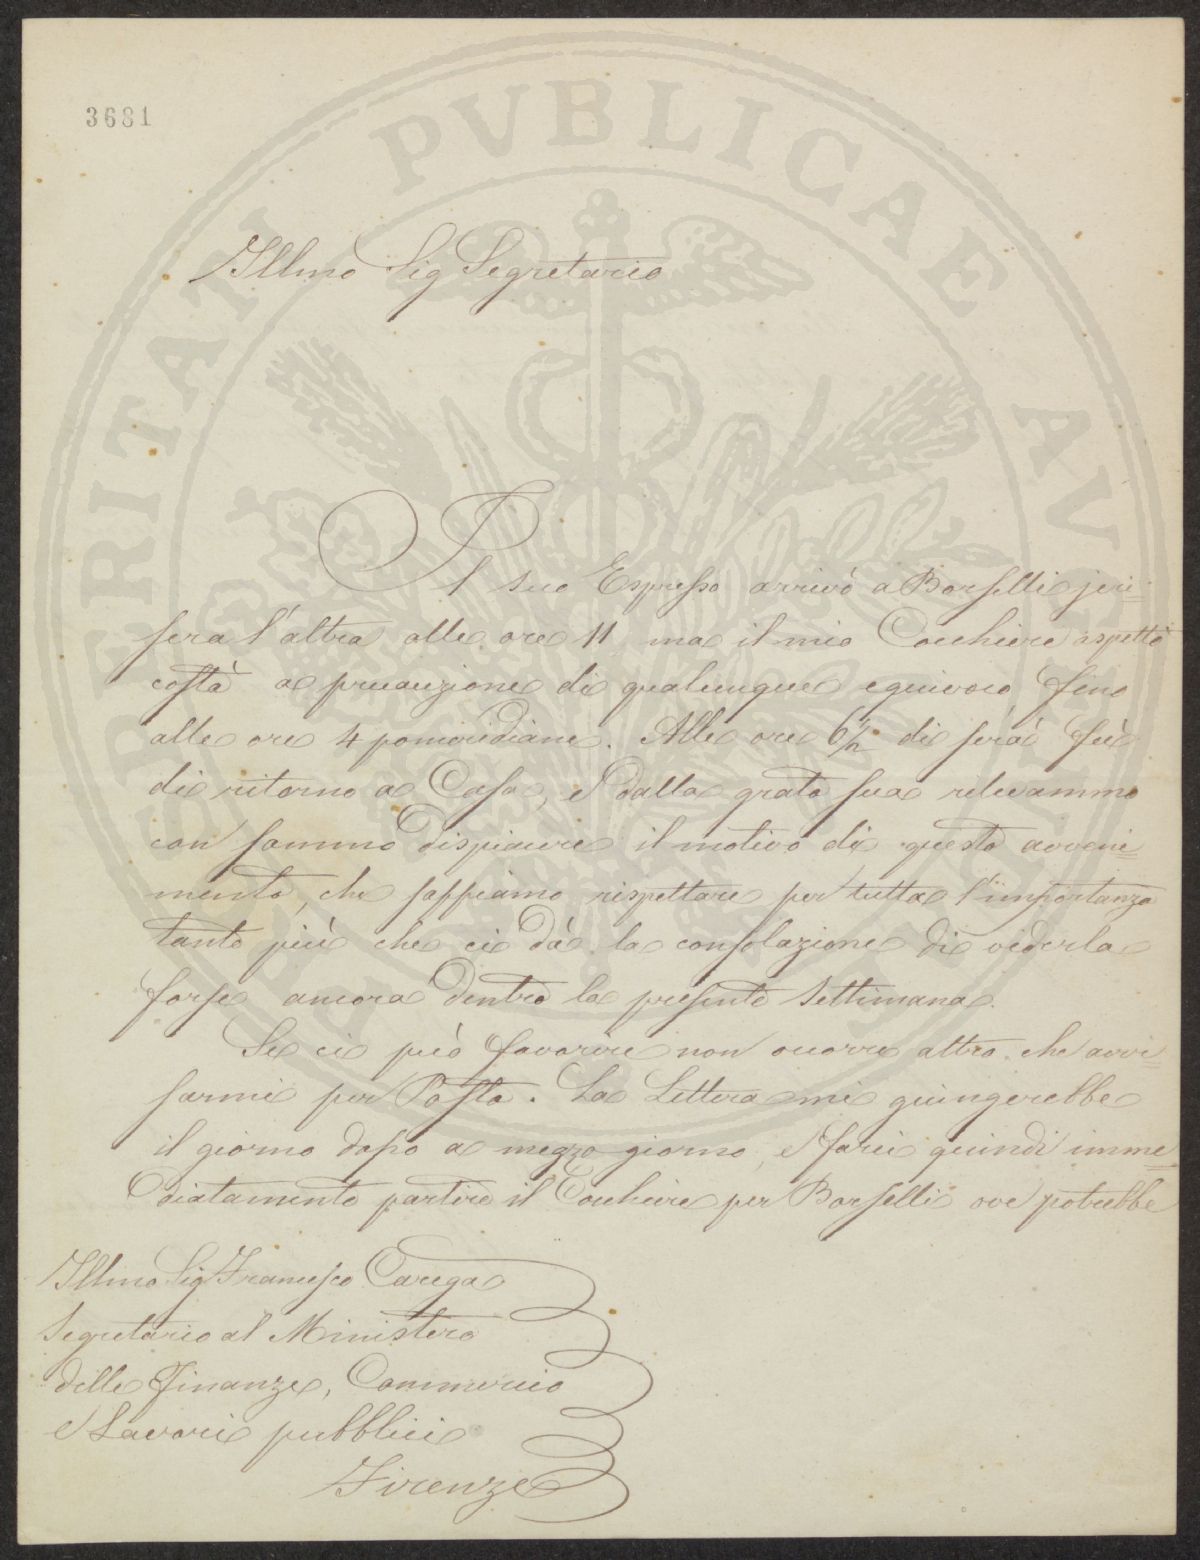 3681
Illmo Sig Segretario
Il suo Espresso arrivò a Borselli jeri=
sera l'altra alle ore 11 ma il mio Cocchiere aspettò
costà a precauzione di qualunque equivoco fino
alle ore 4 pomeridiane. Alle ore 6½ di sera fù
di ritorno a Casa, e dalla grata sua rilevammo
con sommo dispiacere il motivo di questo avveni=
mento, che sappiamo rispettare per tutta l'importanza
tanto più che ci dà la consolazione di vederla
forse ancora dentro la presente Settimana.
Se ci può favorire non occorre altro che avvi=
sarmi per Posta. La Lettera mi giungerebbe
il giorno dopo a mezzo giorno, e farei quindi imme=
diatamente partire il Cocchiere per Borselli ove potrebbe
Illmo Sig Francesco Carega
Segretario al Ministero
delle Finanze, Commercio
e Lavori pubblici
Firenze